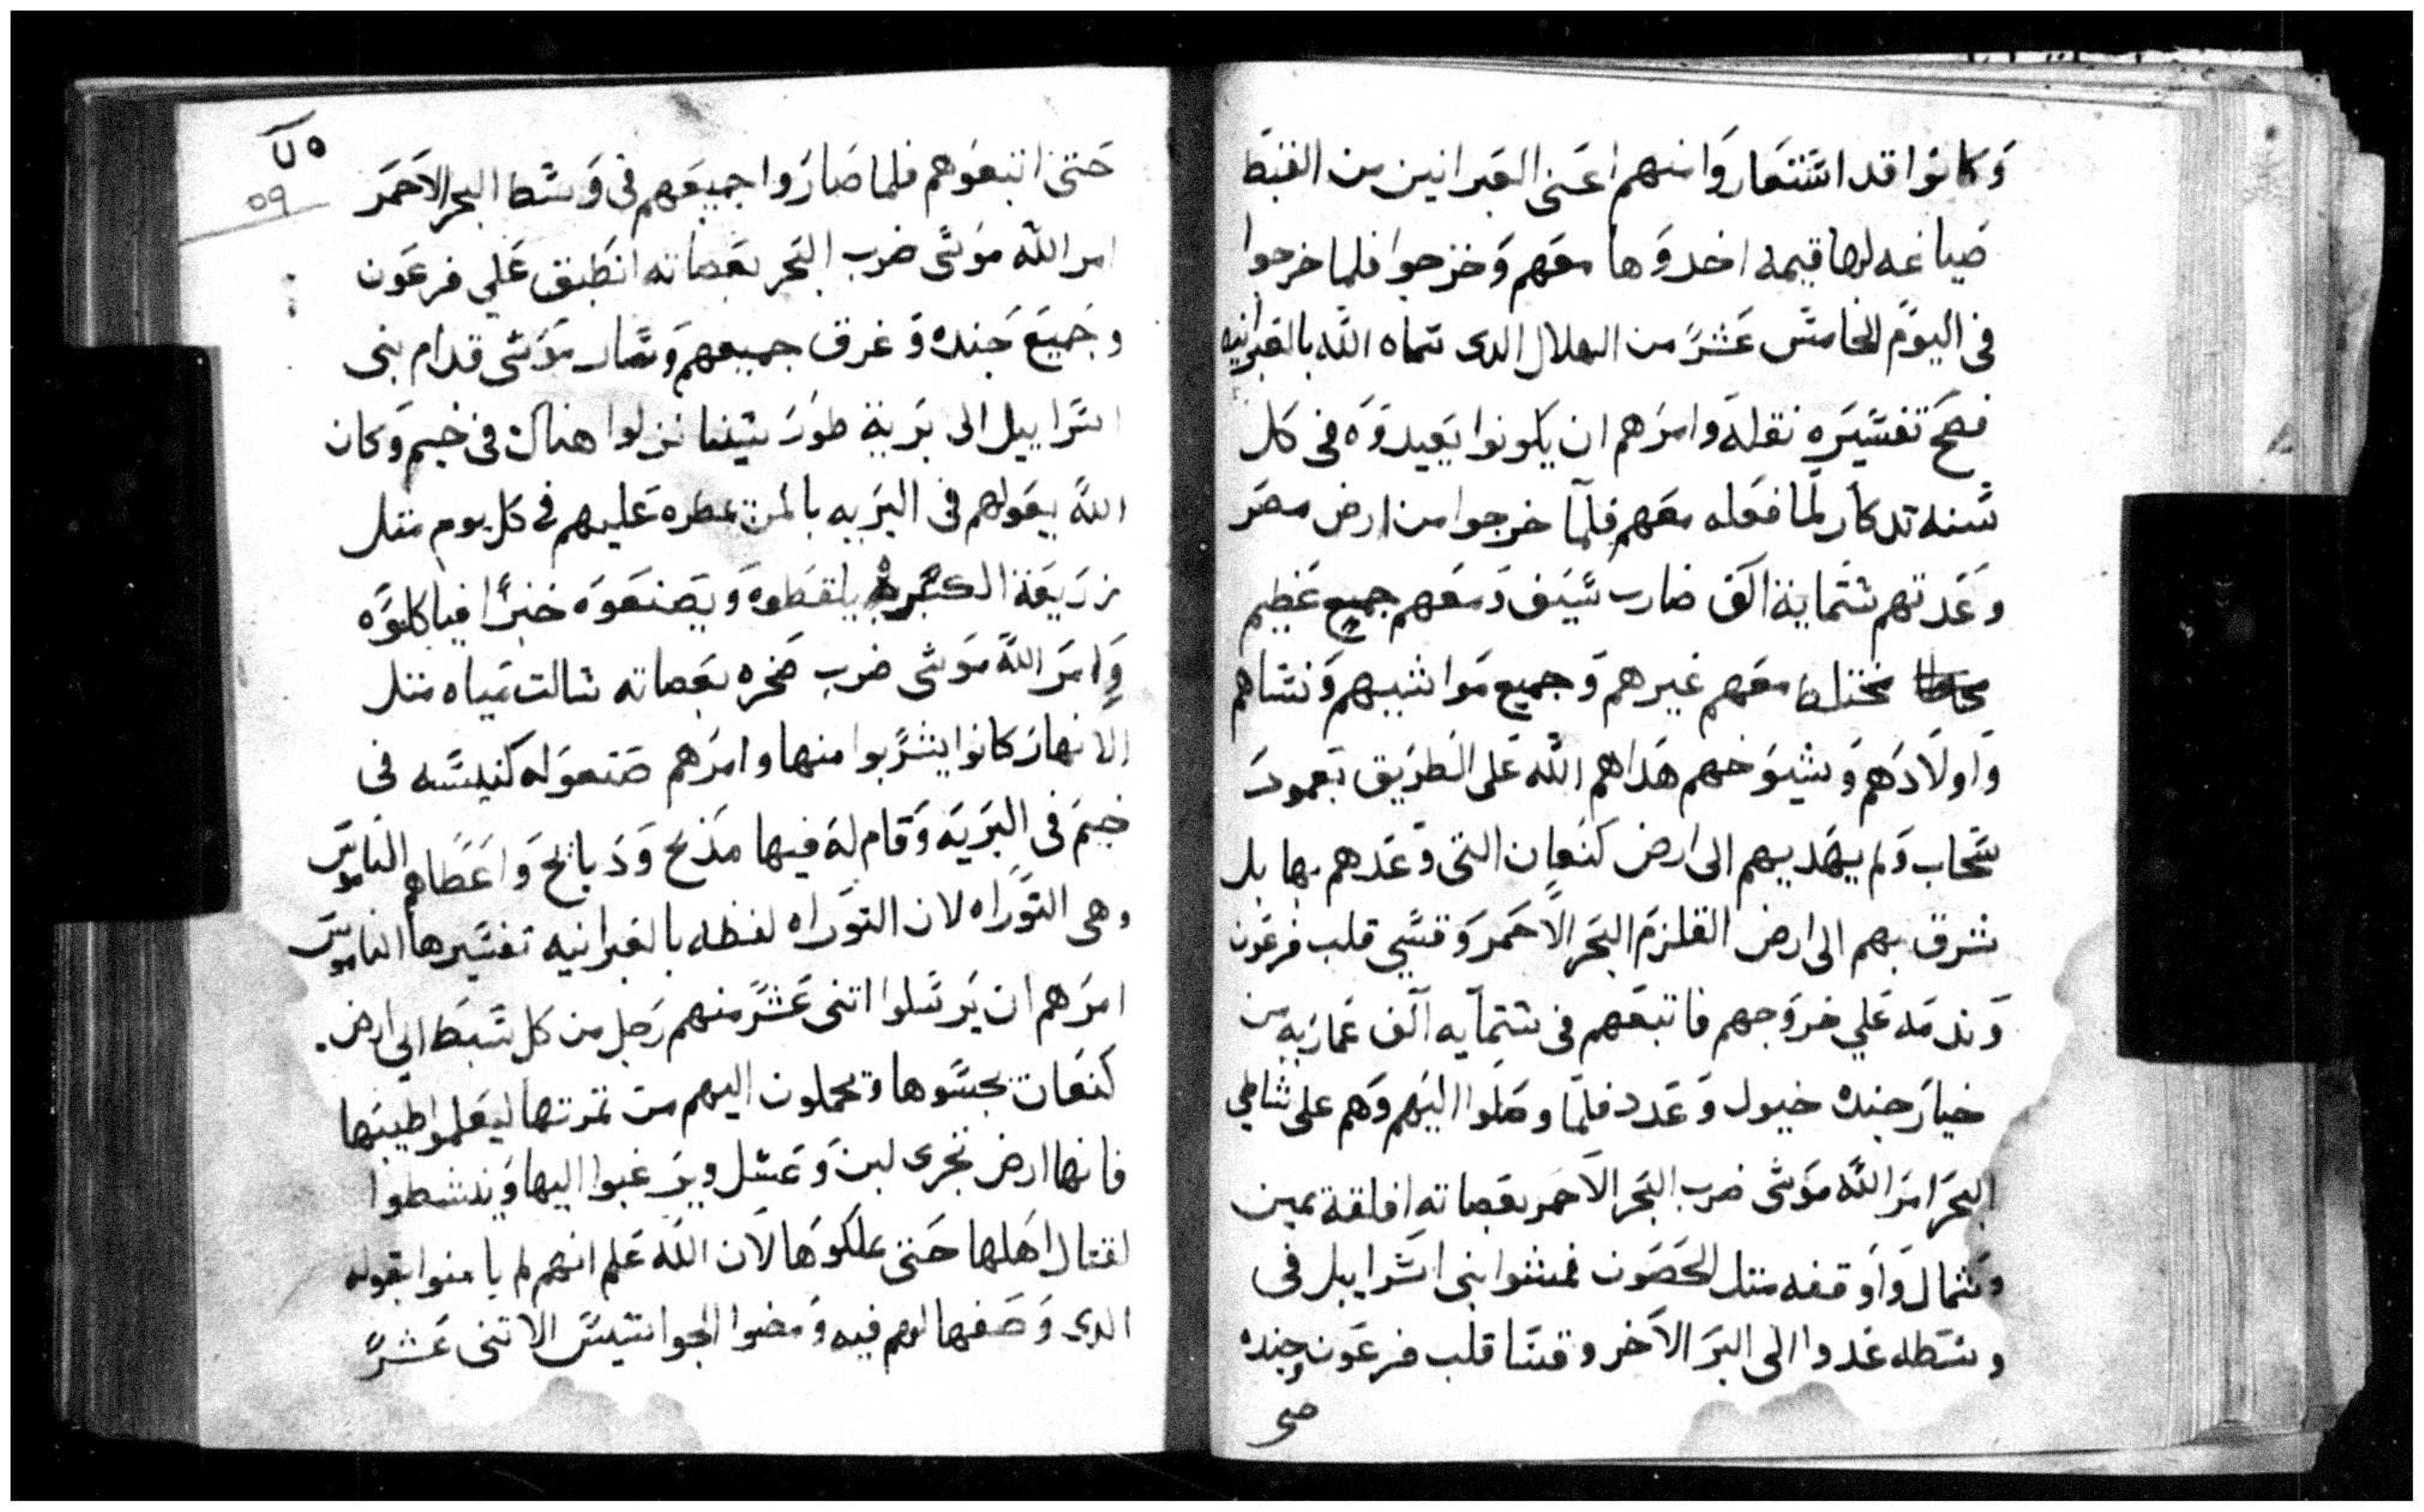 وكانوا قد استعاروا منهم اعنى العبرانين من القبط
صياغه لها قيمه اخدوها معهم وخرجوا فلما خرجوا
فى اليوم الخامس عشر من الهلال الدى سماه الله بالعبرانيه
فصح تفسيره نقله وامرهم ان يكونوا يعيدوه فى كل
سنه تدكار لما فعله معهم فلما خرجوا من ارض مصر
وعدتهم ستماية الف ضارب سيف ومعهم جميع عظيم
مختلط معهم غيرهم وجميع مواشيهم ونساهم
واولادهم وشيوخهم هداهم الله على الطريق بعمود
سحاب ولم يهديهم الى ارض كنعان التى وعدهم بها بل
شرق بهم الى ارض القلزم البحر الاحمر وقسي قلب فرعون
وندمه علي خروجهم فاتبعهم فى ستمايه الف عماريه من
خيار جنده خيول وعدد فلما وصلوا اليهم وهم على شاطي
البحر امر الله موسى ضرب البحر الاحمر بعصاته افلقة يمين
وشمال واوقفه متل الحصون فمشوا بنى اسراييل فى
وسطه عدوا الى البر الاخر وقسا قلب فرعون وجنده
حتى
٥٩
حتى اتبعوهم فلما صاروا جميعهم فى وسط البحر الاحمر
امر الله موسى ضرب البحر بعصاته انطبق علي فرعون
وجميع جنده وغرق جميعهم وسار موسى قدام بنى
اسراييل الى برية طور سينا نزلوا هناك فى خيم وكان
الله يعولهم فى البريه بالمن يمطره عليهم فى كل يوم متل
زريعة الكزبره يلقطوه ويصنعوه خبزا فياكلوه
وامر الله موسى ضرب صخره بعصاته سالت مياه متل
الانهار كانوا يشربوا منها وامرهم صنعو له كنيسه فى
خيم فى البريه وقام له فيها مذبح وذبايح واعطاهم الناموس
وهى التوراه لان التوراه لفظه بالعبرانيه تفسيرها الناموس
امرهم ان يرسلوا اتنى عشر منهم رجل من كل سبط الي ارض
كنعان يجسوها ويحملون اليهم من تمرتها ليعلموا طيبها
فانها ارض تجرى لبن وعسل ويرغبوا اليها وينشطوا
لقتال اهلها حتى يملكوها لان الله علم انهم لم يامنوا بقوله
الدى وصفها لهم فيه ومضوا الجواسيس الاتنى عشر